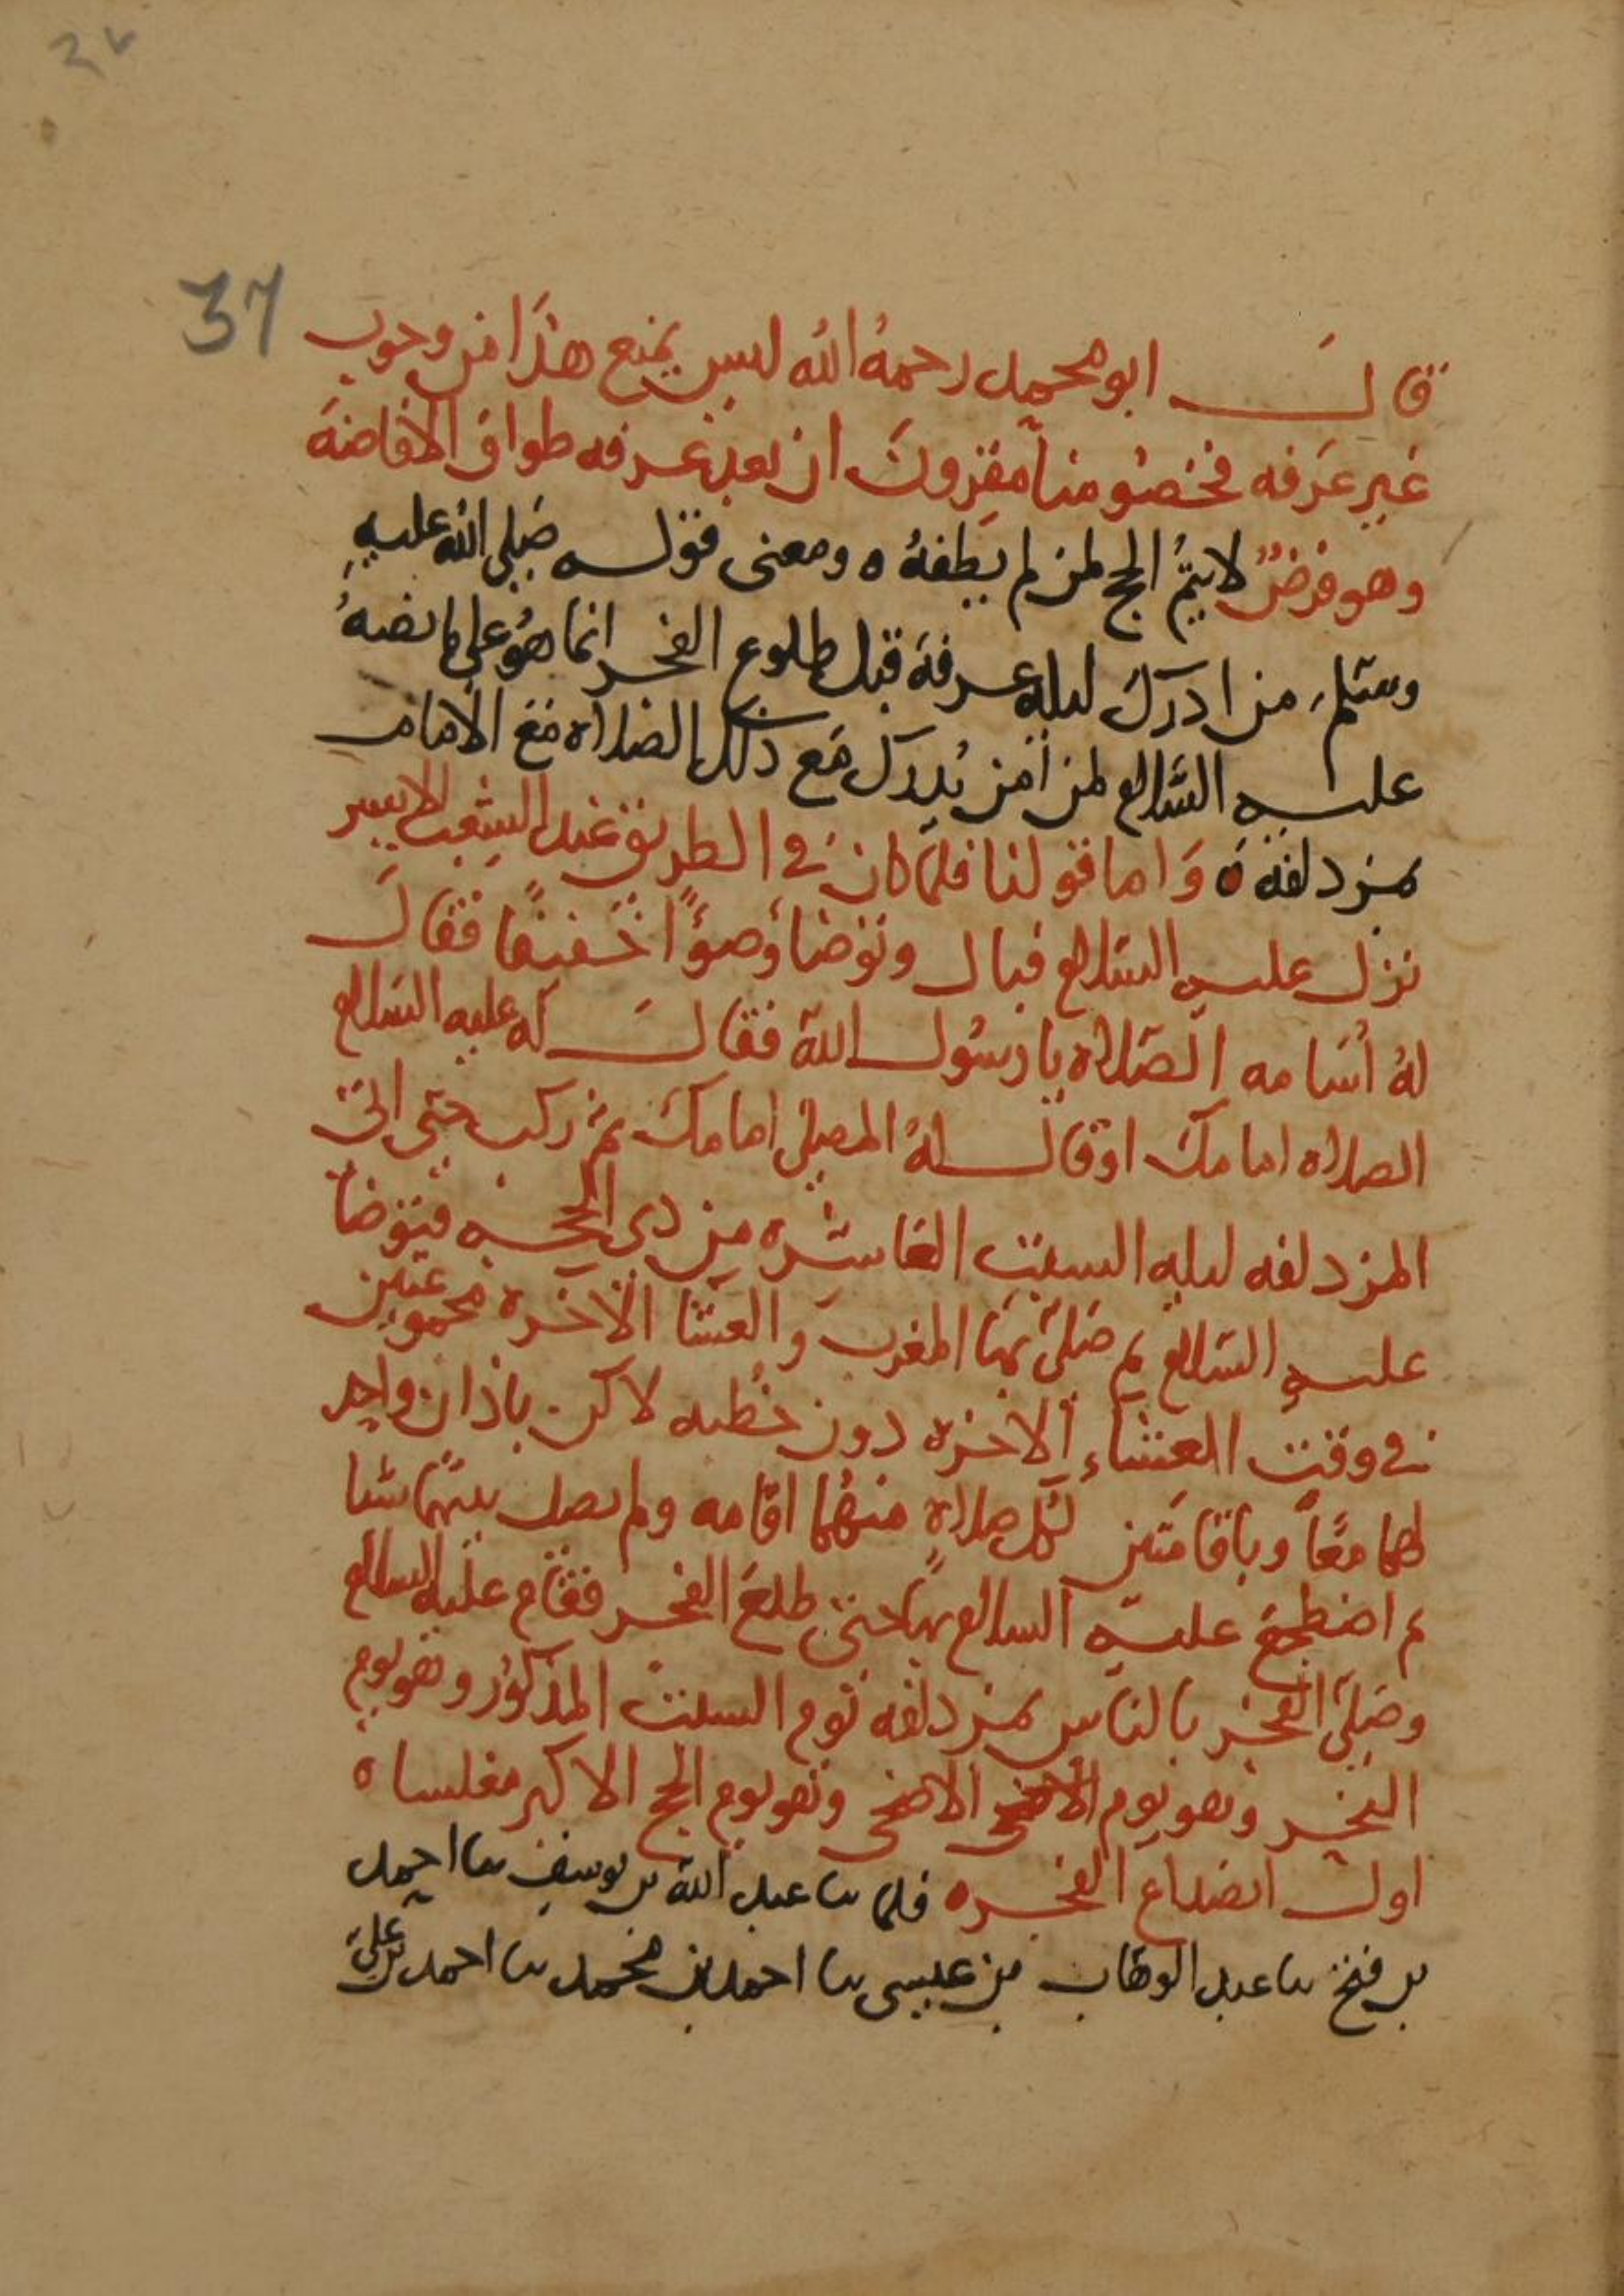 37
قال ابو محمد رحمهُ اللهُ ليس يمنع هذا من وجوب
غير عرفه فخصومنا مقرون ان بعد عرفه طواف الافاضة
وهو فرضٌ لا يتمُّ الحج لمن لم يطفهُ ه ومعنى قوله صلى الله عليهِ
وسلم من ادرك ليله عرفة قبل طلوع الفجر انما هُو على ما نصهُ
عليه السلام لمن امن يُدرك مَع ذلك الصلاه مَع الامام
بمزدلفه ه وَاما قولنا فلما كان في الطريق عند الشِعب الايسر
نزل عليه السلام فبال وتوضا وُضوءًا خَفيفًا فقال
لهُ اُسَامه الصَلاه يا رسُول الله فقال له عليه السلام
الصلاه امامك او قال لهُ المصلى امامك ثم ركب حتى اتى
المزدلفه ليله السبت العاشره من ذي الحجه فتوضا
عليه السلام ثم صَلى بها المغرب والعشا الاخره مجموعتين
في وقت العشاء الاخره دون خُطبه لاكن باذان واحد
لهما معًا وباقامَتين لكل صلاةٍ منهُما اقامه ولم يصل بينهما شيا
ثم اضطجع عليه السلام بها حتى طلعَ الفجر فقام عليه السلام
وصَلى الفجر بالناس بمزدلفه يوم السبت المذكور وهو يوم
النحر وهو يوم الاضحى الاضحى وهو يوم الحج الاكبر مغلسا ه
اول انصداع الفجر ه فلما ىا عبد الله بن يوسف ىا احمد
بن فتح ىا عبد الوهاب بن عيسى ىا احمد بن محمد ىا احمد بن علي